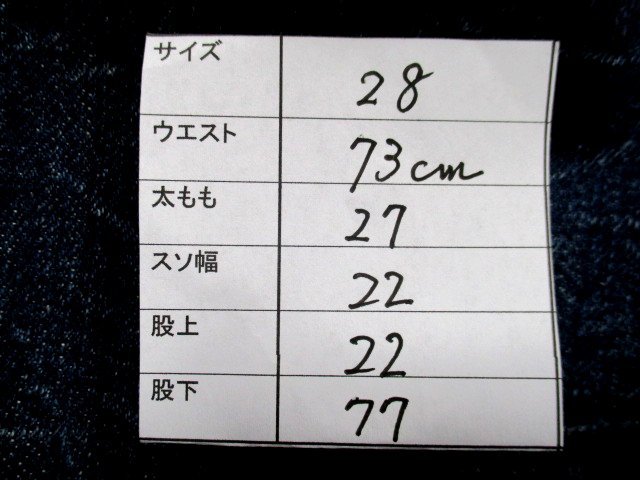 サイズ 28
ウエスト 73cm
太もも 27
スソ幅 22
股上 22
股下 77